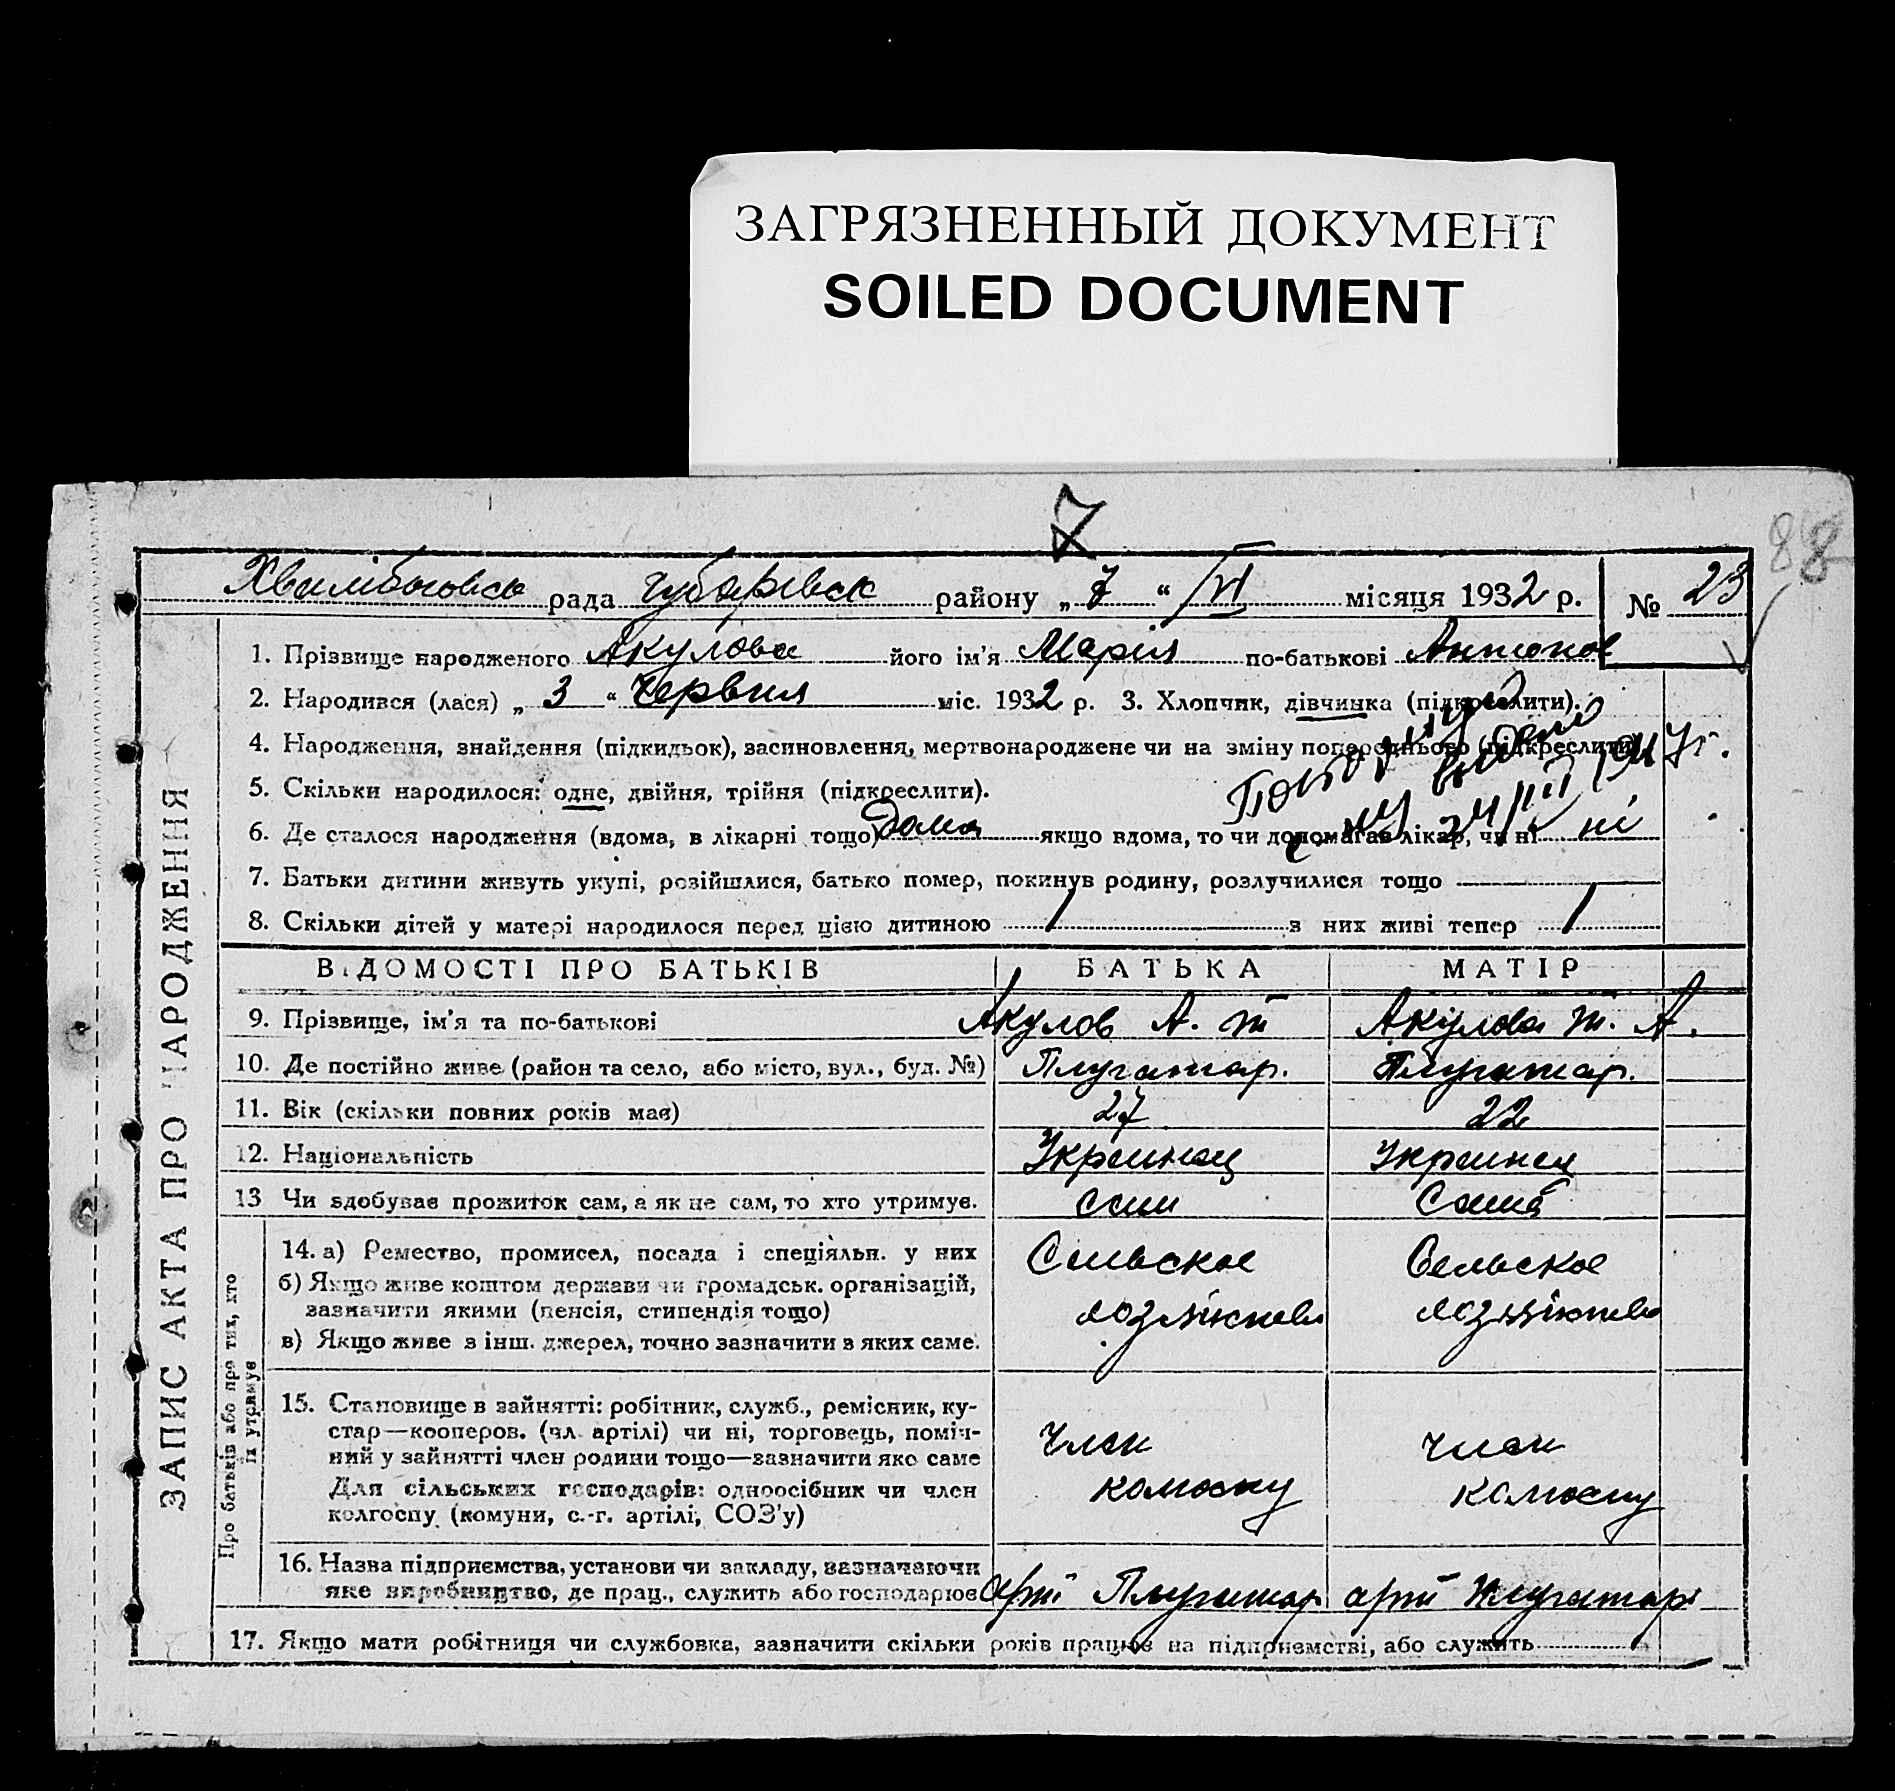 ЗАГРЯЗНЕННЫЙ ДОКУМЕНТ
SOILED DOCUMENT
7
88
рада Губарівск району „ 7 “ VI місяця 1932 р.
№ 23
1. Прізвище народженого Акулова його ім'я Марія по-батькові Антонов
2. Народився (лася) „ 3 “ Червня міс. 1932 р. 3. Хлопчик, дівчинка (підкреслити).
4. Народження, знайдення (підкидьок), засиновлення, мертвонароджене чи на зміну попереднього (підкреслити)
5. Скільки народилося: одне, двійня, трійня (підкреслити).
6. Де сталося народження (вдома, в лікарні тощо) Дома якщо вдома, то чи допомагав лікар, чи ні ні
7. Батьки дитини живуть укупі, розійшлися, батько помер, покинув родину, розлучилися тощо
8. Скільки дітей у матері народилося перед цією дитиною 1 з них живі тепер 1
1947 г.
ВІДОМОСТІ ПРО БАТЬКІВ БАТЬКА МАТІР
9. Прізвище, ім'я та по-батькові Акулов А. т Акулова т. А.
10. Де постійно живе (район та село, або місто, вул., буд. №) Плугатар. Плугатар.
11. Вік (скільки повних років має) 27 22
12. Національність Украинец Украинся
13 Чи здобуває прожиток сам, а як не сам, то хто утримує. сам Сама
14. а) Ремество, промисел, посада і спеціяльн. у них Сельское Сельское
б) Якщо живе коштом держави чи громадськ. організацій,
зазначити якими (пенсія, стипендія тощо)
в) Якщо живе з інш. джерел, точно зазначити з яких саме.
15. Становище в зайнятті: робітник, служб., ремісник, ку-
стар—кооперов. (чл. артілі) чи ні, торговець, поміч- Член член
ний у зайнятті член родини тощо—зазначити яко саме
Для сільських господарів: одноосібник чи член
колгоспу (комуни, с.-г. артілі, СОЗ'у)
16. Назва підприємства, установи чи закладу, зазначаючи
яке виробництво, де прац., служить або господарює арті Плугатар арті Плугатар
17. Якщо мати робітниця чи службовка, зазначити скільки років працює на підприємстві, або служить
ЗАПИС АКТА ПРО НАРОДЖЕННЯ
Про батьків або про тих, хто
їх утримує